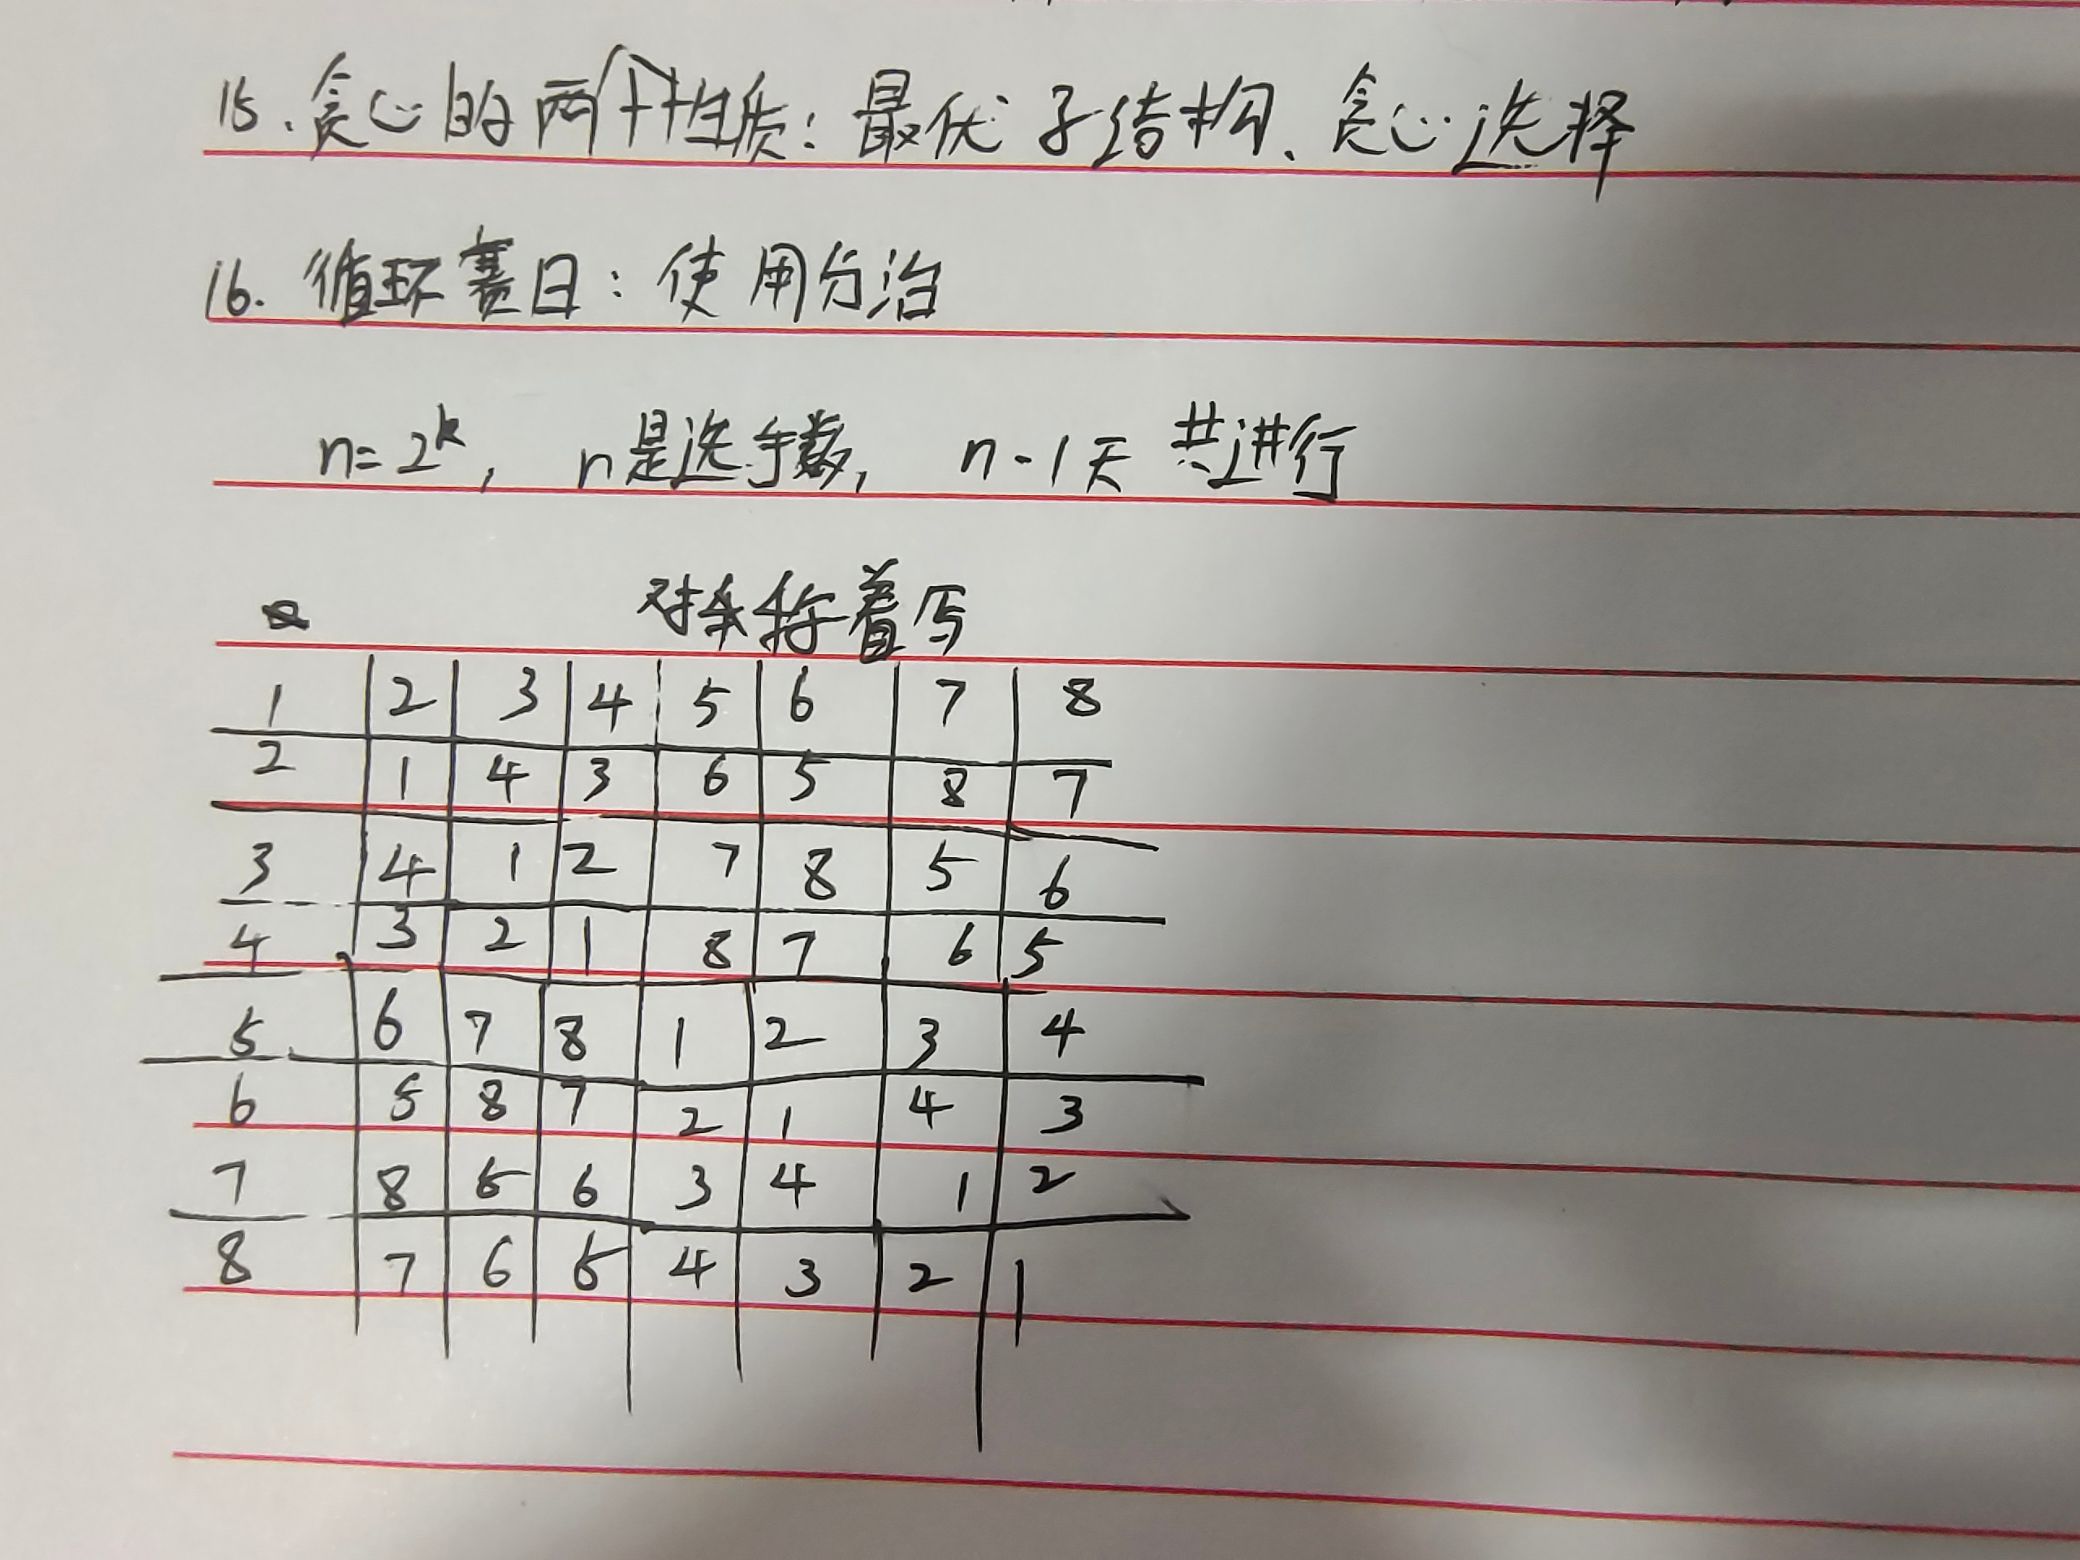 15、贪心的两个性质：最优子结构、贪心选择
16. 循环赛日：使用分治
n=2^k, n是选手数, n-1天共进行
对称着写
1 2 3 4 5 6 7 8
2 1 4 3 6 5 8 7
3 4 1 2 7 8 5 6
4 3 2 1 8 7 6 5
5 6 7 8 1 2 3 4
6 5 8 7 2 1 4 3
7 8 5 6 3 4 1 2
8 7 6 5 4 3 2 1